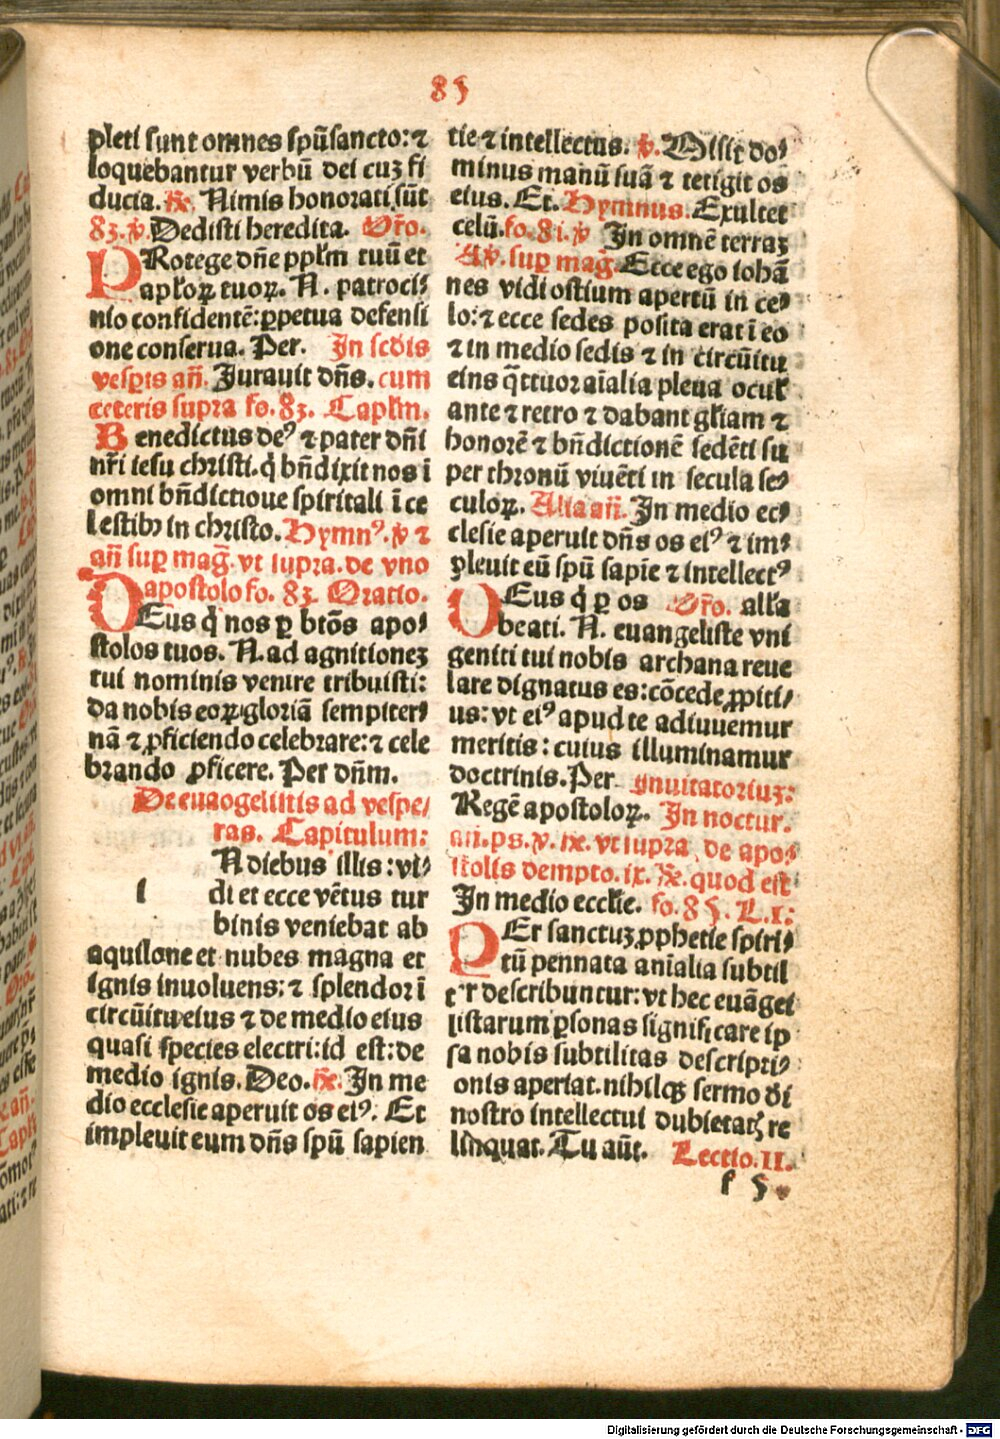 85
pleti sunt omnes spūsancto: ⁊
loquebantur verbū dei cuꝫ fi
ducia. ℟. Nimis honorati sūt
83. ℣. Dedisti heredita. Or̄o.
PRotege dn̄e pplm̄ tuū et
aplōꝝ tuoꝝ. N. patroci⸗
nio confidentē: ꝑpetua defensi
one conserua. Per. In scd̄is
vesꝑis an̄. Jurauit dn̄s. cum
ceteris supra fo. 83. Caplm̄.
Benedictus de⁹ ⁊ pater dn̄i
nr̄i iesu christi. q̇ bn̄dixit nos ī
omni bn̄dictioue spiritali ī ce
lestibꝫ in christo. Hymn⁹. ℣ ⁊
an̄ suꝑ mag̃. vt supra. de vno
apostolo fo. 83. Oratio.
DEus q̇ nos ꝑ btōs apo⸗
stolos tuos. N. ad agnitioneꝫ
tui nominis venire tribuisti:
da nobis eoꝝ gloriā sempiter⸗
nā ⁊ ꝓficiendo celebrare: ⁊ cele
brando ꝓficere. Per dn̄m.
De euangelistis ad vespe⸗
ras. Capitulum:
i N diebus illis: vi⸗
di et ecce vētus tur
binis veniebat ab
aquilone et nubes magna et
ignis inuoluens: ⁊ splendor ī
circūitu eius ⁊ de medio eius
quasi species electri: id est: de
medio ignis. Deo. ℟. In me
dio ecclesie aperuit os ei⁹. Et
impleuit eum dn̄s spū sapien
tie ⁊ intellectus. ℣. Misit do⸗
minus manū suā ⁊ tetigit os
eius. Et. Hymnus. Exultet
celū. fo. 81. ℣ In omnē terraꝫ
Aṽ. suꝑ mag̃. Ecce ego iohā
nes vidi ostium apertū in ce⸗
lo: ⁊ ecce sedes posita erat ī eo
⁊ in medio sedis ⁊ in circūitu
eius q̄ttuor aīalia plena ocul̄
ante ⁊ retro ⁊ dabant gl̄iam ⁊
honorē ⁊ bn̄dictionē sedēti su
per thronū viuēti in secula se⸗
culoꝝ. Alia an̄. In medio ec⸗
clesie aperuit dn̄s os ei⁹ ⁊ im⸗
pleuit eū spū sapīe ⁊ intellect⁹
DEus q̇ ꝑ os Or̄o. all̄a
beati. N. euangeliste vni
geniti tui nobis archana reue
lare dignatus es: cōcede ꝓpiti⸗
us: vt ei⁹ apud te adiuuemur
meritis: cuius illuminamur
doctrinis. Per Inuitatoriuꝫ:
Regē apostoloꝝ. In noctur.
an. ps. ℣. ℟. vt supra de apo⸗
stolis dempto. ix. ℟. quod est
In medio eccl̄ie. fo. 85. L. i:
PEr sanctuꝫ ꝓphetie spiri⸗
tū pennata anīalia subtil
t̾r describuntur: vt hec euāgel
listarum ꝑsonas significare ip
sa nobis subtilitas descripti⸗
onis aperiat. nihilqꝫ sermo di
nostro intellectui dubietatꝭ re
linquat. Tu aūt. Lectio. II.